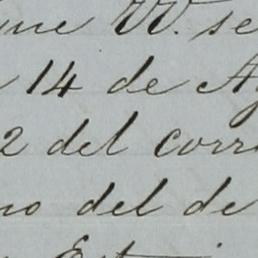 VV. se
14 de A
2 del corr
no del de